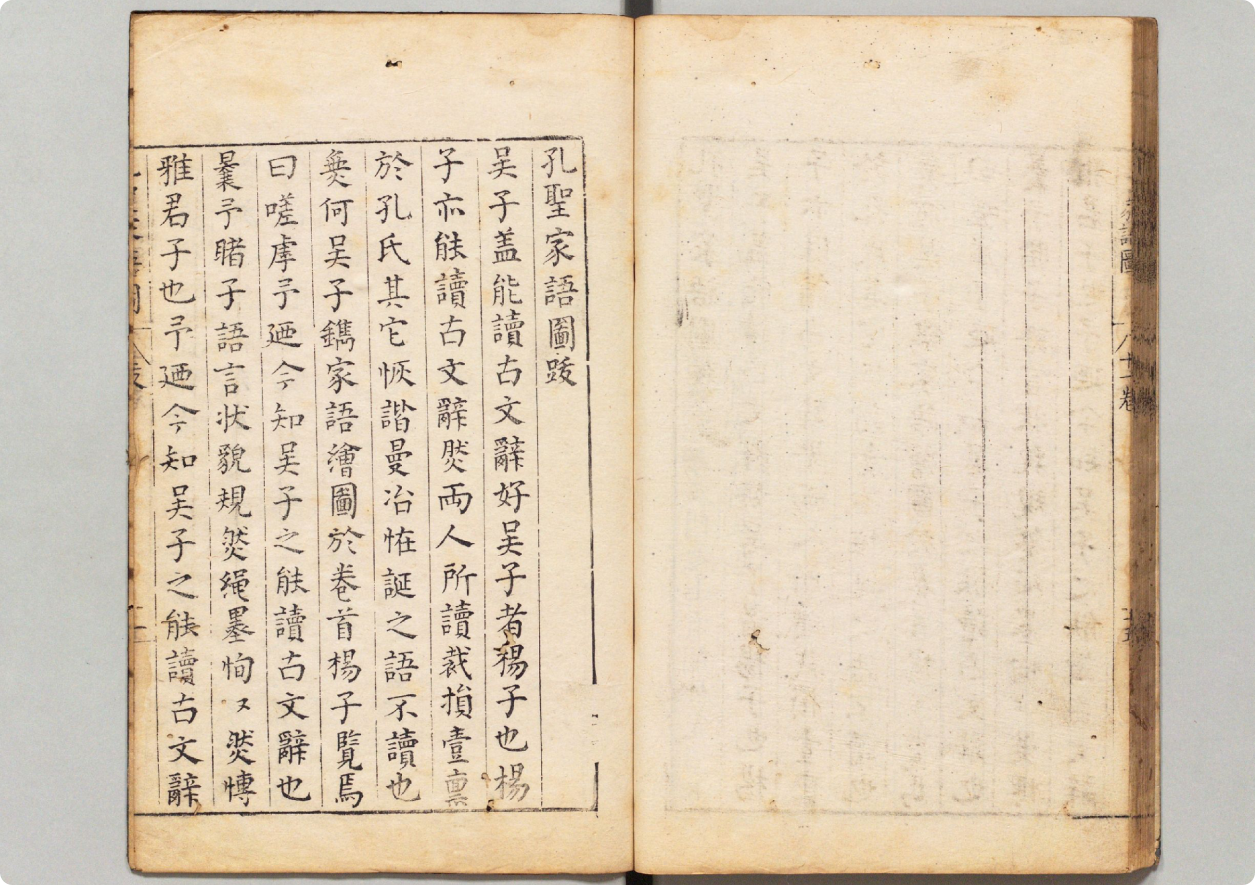 孔聖家語圖跋
吴子盖能讀古文辭好吴子者楊子也楊
子亦能讀古文辭然兩人所讀裁損壹禀
於孔氏其它恢諧曼冶恠誕之語不讀也
奠何吴子鐫家語繪圖於卷首楊子覧焉
曰嗟虖予廼今知吴子之能讀古文辭也
曩予睹子語言状貌規然繩墨恂〻然慱
雅君子也予廼今知吴子之能讀古文辭
家語圖
八十一卷